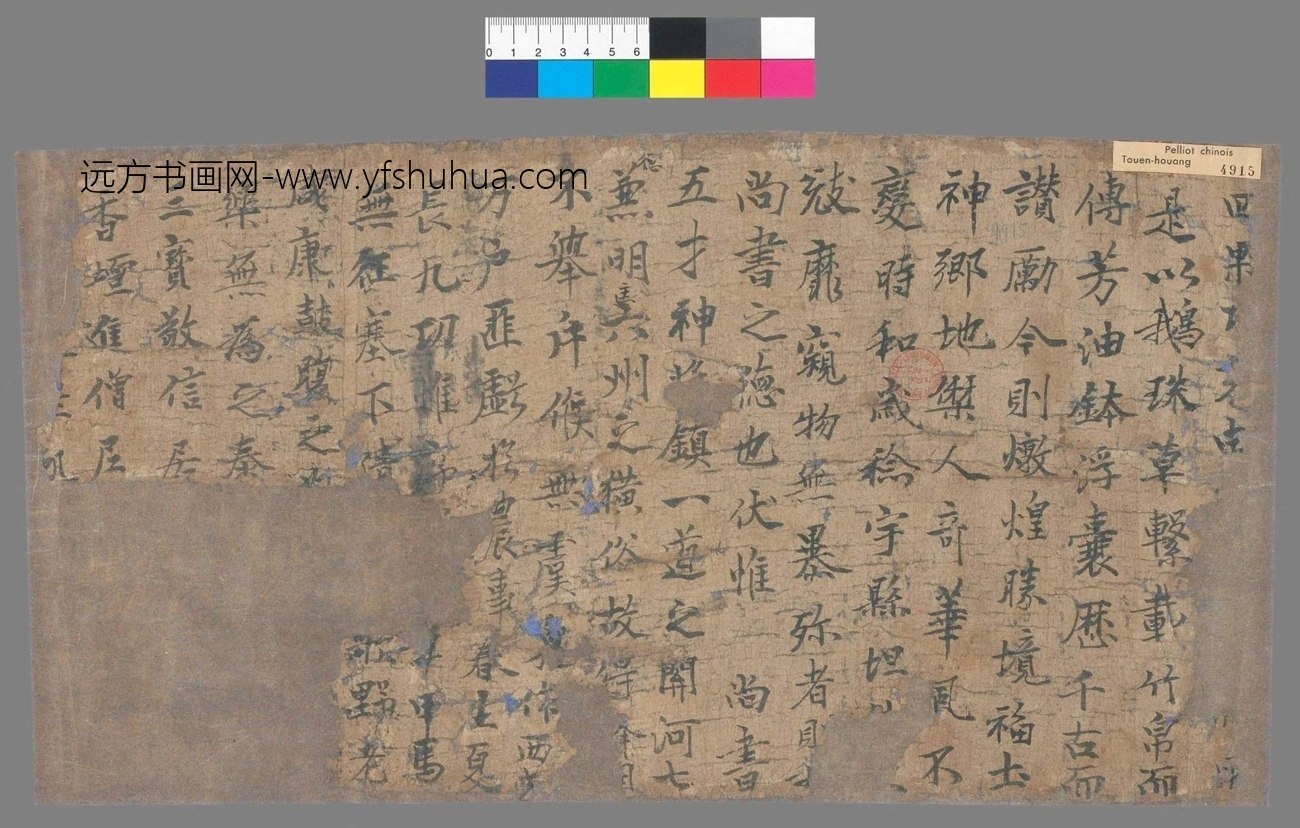 0 1 2 3 4 5 6
远方书画网-www.yfshuhua.com
Pelliot chinois
Touen-houang
4915
是以鵝珠草繫載竹帛而
傳芳油鉢浮囊歷千古而
讃勵令則燉煌勝境福土
神鄉地傑人奇華風不
變時和歲稔宇縣坦
靡窺物無暴弥者則
尚書之德也伏惟 尚書
五才神 鎮一道之關河七
德兼明 六州之獷俗故得
不舉斥候無虞 作西
户匪 扵 辰事春生夏
長九 惟 甲馬
無征塞下 野老
咸康鼓腹之
樂無為之泰
三寶敬信居
香壇進僧尼